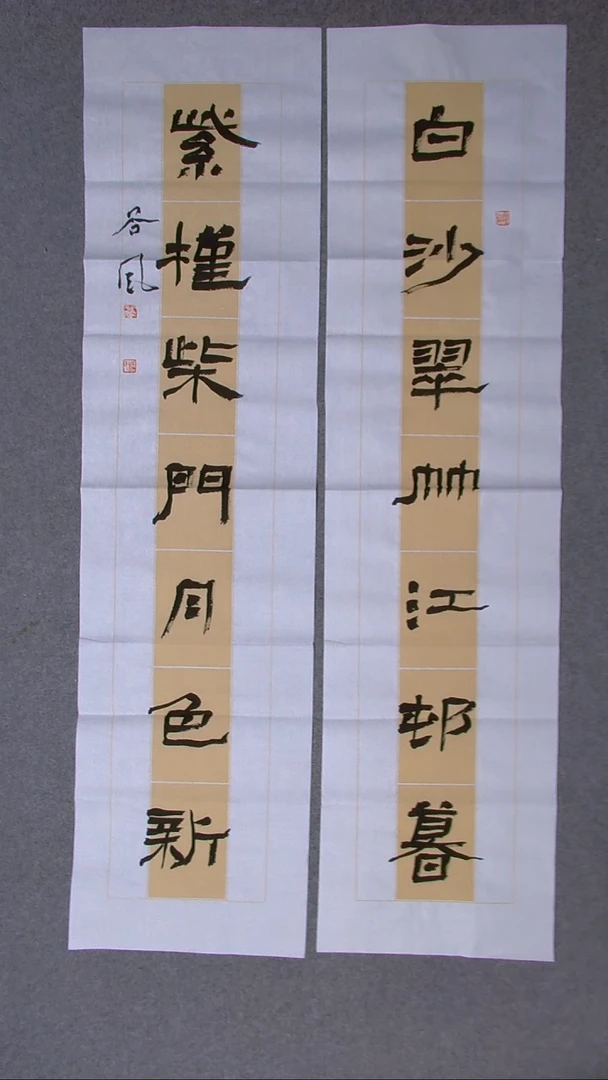 白沙翠竹江邨暮
紫槿柴門月色新
谷风